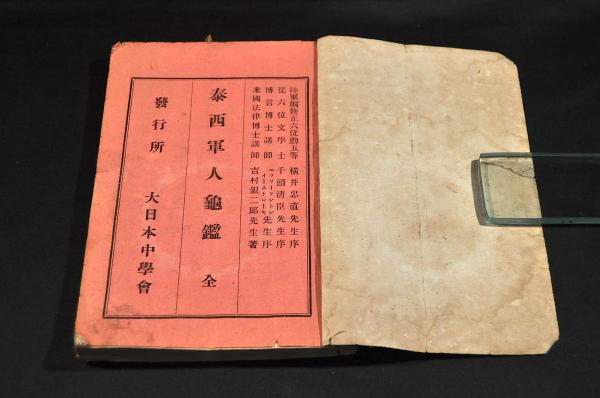 陸軍編修正六位勳五等 横井忠直先生序
從六位文學士 千頭清臣先生序
博言博士講師 エフワーリントン イーストレーキ 先生序
米國法律博士講師 吉村銀二郎先生著
泰西軍人龜鑑 全
發行所 大日本中學會